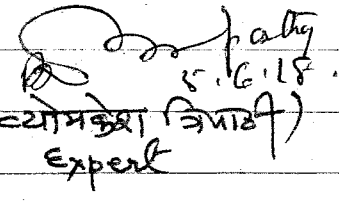 pathy
5.6.18.
व्योमकेश त्रिपाठी)
Expert